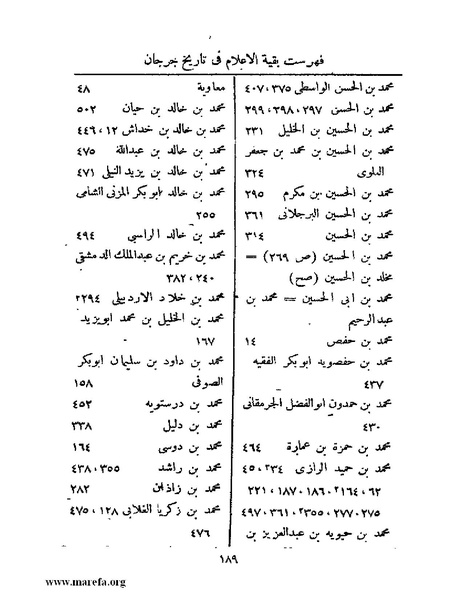 فهرست بقية الاعلام فى تاريخ جرجان
محمد بن الحسن الواسطى ٣٧٥، ٤٠٧
محمد بن الحسن ٢٩٧، ٣٩٨، ٢٩٩
محمد بن الحسين بن الخليل ٢٣١
محمد بن الحسين بن محمد بن جعفر
البلوى ٣٢٤
محمد بن الحسين بن مكرم ٢٩٥
محمد بن الحسين البرجلانى ٣٦١
محمد بن الحسين ٣١٤
محمد بن الحسين (ص ٢٦٩) =
مخلد بن الحسين (صح)
محمد بن ابى الحسين = محمد بن
عبدالرحيم
محمد بن حفص ١٤
محمد بن حفصويه ابوبكر الفقيه
٤٣٧
محمد بن حمدون ابوالفضل الجرمقانى
٤٣٠
محمد بن حمزة بن عمارة ٤٦٤
محمد بن حميد الرازى ٢٣٤، ٤٥
٦٢، ١٦٤٢، ١٨٦، ١٨٧، ٢٢١
٢٧٥، ٢٧٧، ٣٥٥٢، ٣٦١، ٤٩٧
محمد بن حيويه بن عبدالعزيز بن
معاوية ٤٨
محمد بن خالد بن حيان ٥٠٢
محمد بن خالد بن خداش ١٢، ٤٤٦
محمد بن خالد بن عبدالله ٤٧٥
محمد بن خالد بن يزيد النيلى ٤٧١
محمد بن خالد ابوبكر المزنى الشامى
٢٥٥
محمد بن خالد الراسبى ٤٩٤
محمد بن خريم بن عبدالملك الدمشقى
٢٤٠، ٣٨٢
محمد بن خلاد الاردبيلى ٢٢٩٤
محمد بن الخليل بن محمد ابويزيد
١٦٧
محمد بن داود بن سليمان ابوبكر
الصوفى ١٥٨
محمد بن درستويه ٤٥٢
محمد بن دليل ٣٣٨
محمد بن دوسى ١٦٤
محمد بن راشد ٣٥٥، ٤٣٨
محمد بن زاذان ٢٨٢
محمد بن زكريا الغلابى ١٢٨، ٤٧٥
٤٧٦
١٨٩
www.marefa.org